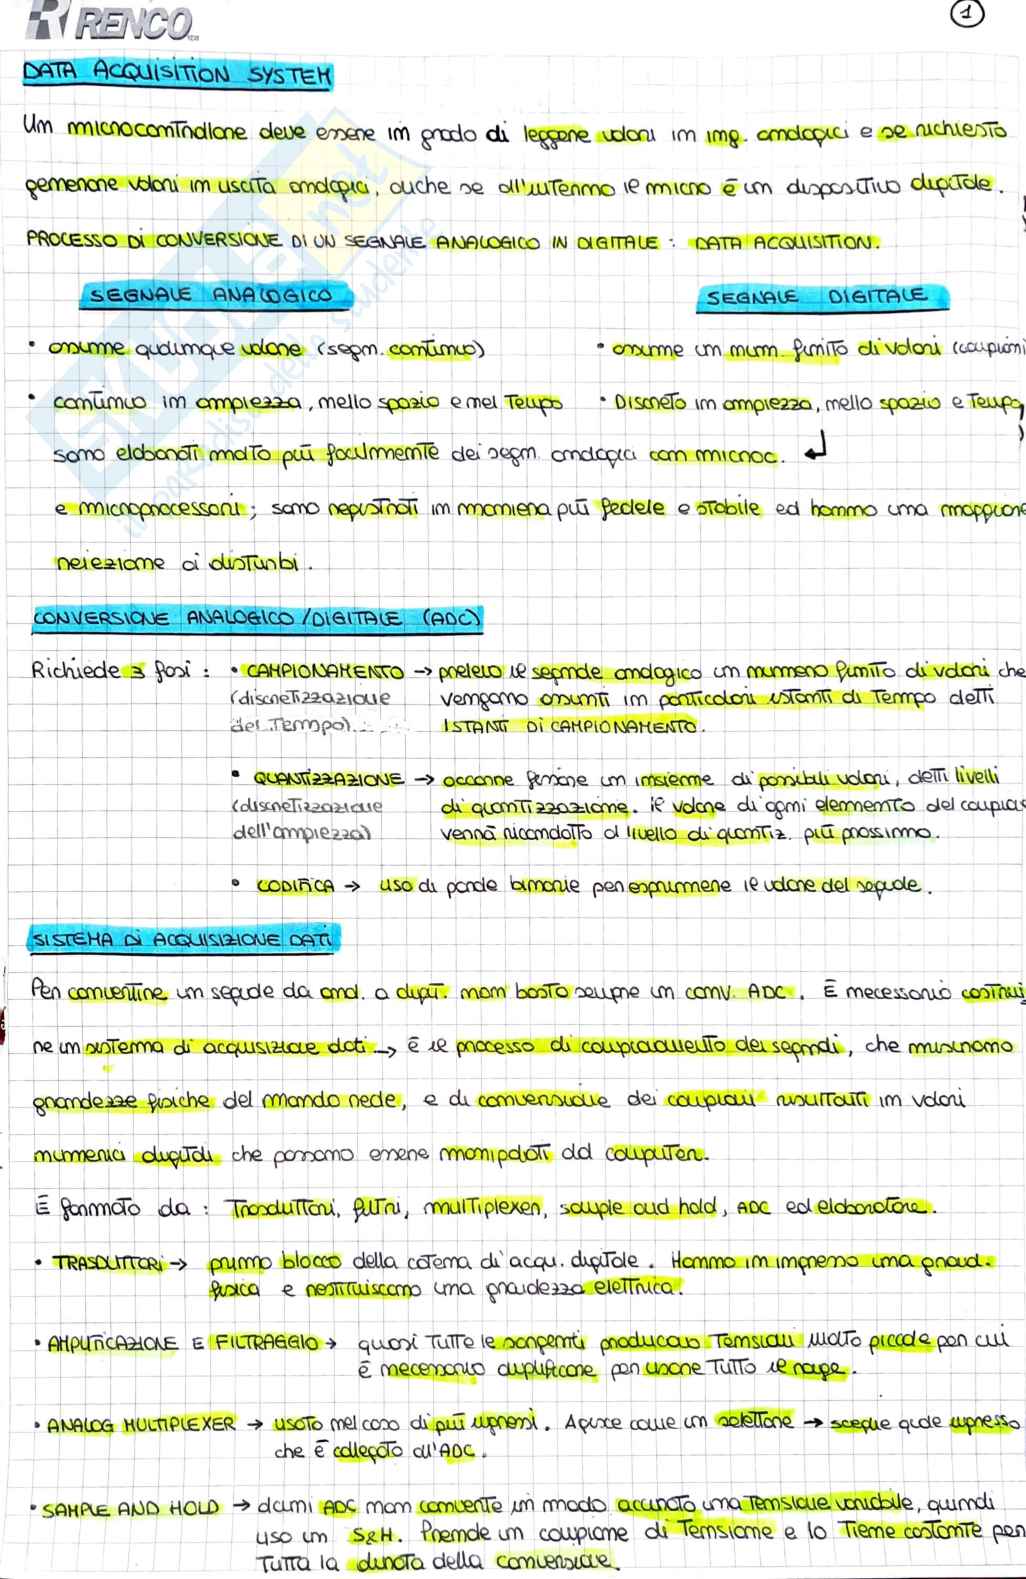 RENCO
1
DATA ACQUISITION SYSTEM
Un microcontrollore deve essere in grado di leggere valori in ing. analogici e se richiesto
generare valori in uscita analogici, anche se all'interno il micro è un dispositivo digitale.
PROCESSO DI CONVERSIONE DI UN SEGNALE ANALOGICO IN DIGITALE : DATA ACQUISITION.
SEGNALE ANALOGICO
SEGNALE DIGITALE
• assume qualunque valore (segn. continuo)
• assume un num. finito di valori (campioni
• continuo in ampiezza, nello spazio e nel tempo
• Discreto in ampiezza, nello spazio e tempo,
sono elaborati molto più facilmente dei segn. analogici con microc.
e microprocessori; sono registrati in maniera più fedele e stabile ed hanno una maggiore
reiezione ai disturbi.
CONVERSIONE ANALOGICO/DIGITALE (ADC)
Richiede 3 fasi : • CAMPIONAMENTO → prelevo il segnale analogico un numero finito di valori che
(discretizzazione vengono assunti in particolari istanti di tempo detti
del tempo) ISTANTI DI CAMPIONAMENTO.
• QUANTIZZAZIONE → occorre fissare un insieme di possibili valori, detti livelli
(discretizzazione di quantizzazione. il valore di ogni elemento del campio
dell'ampiezza) verrà ricondotto al livello di quantiz. più prossimo.
• CODIFICA → uso di parole binarie per esprimere il valore del segnale.
SISTEMA DI ACQUISIZIONE DATI
Per convertire un segnale da anal. a digit. non basta sempre un conv. ADC. È necessario costrui
re un sistema di acquisizione dati → è il processo di campionamento dei segnali, che misurano
grandezze fisiche del mondo reale, e di conversione dei campioni risultanti in valori
numerici digitali che possono essere manipolati dal computer.
È formato da : Trasduttori, filtri, multiplexer, sample and hold, ADC ed elaboratore.
• TRASDUTTORI → primo blocco della catena di acqu. digitale. Hanno in ingresso una grand.
fisica e restituiscono una grandezza elettrica.
• AMPLIFICAZIONE E FILTRAGGIO → quasi tutte le sorgenti producono tensioni molto piccole per cui
è necessario amplificare per usare tutto il range.
• ANALOG MULTIPLEXER → usato nel caso di più ingressi. Agisce come un selettore → sceglie quale ingresso
che è collegato all'ADC.
• SAMPLE AND HOLD → alcuni ADC non converte in modo accurato una tensione variabile, quindi
uso un S&H. Prende un campione di tensione e lo tiene costante per
tutta la durata della conversione.